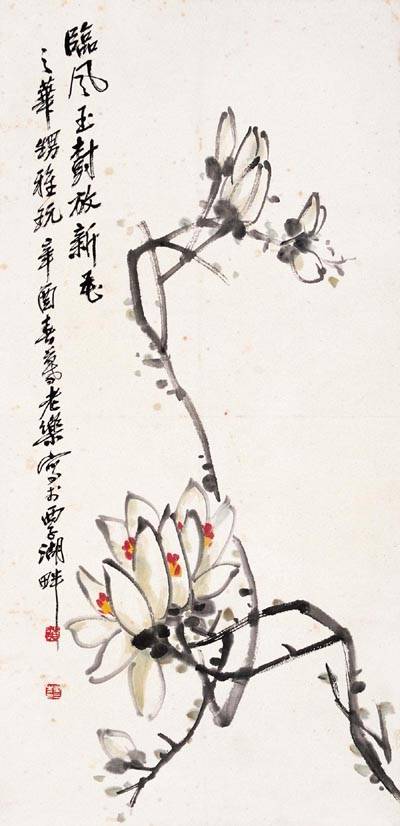 臨風玉樹放新花
之華甥雅玩辛酉春暮老樂寫於湖畔